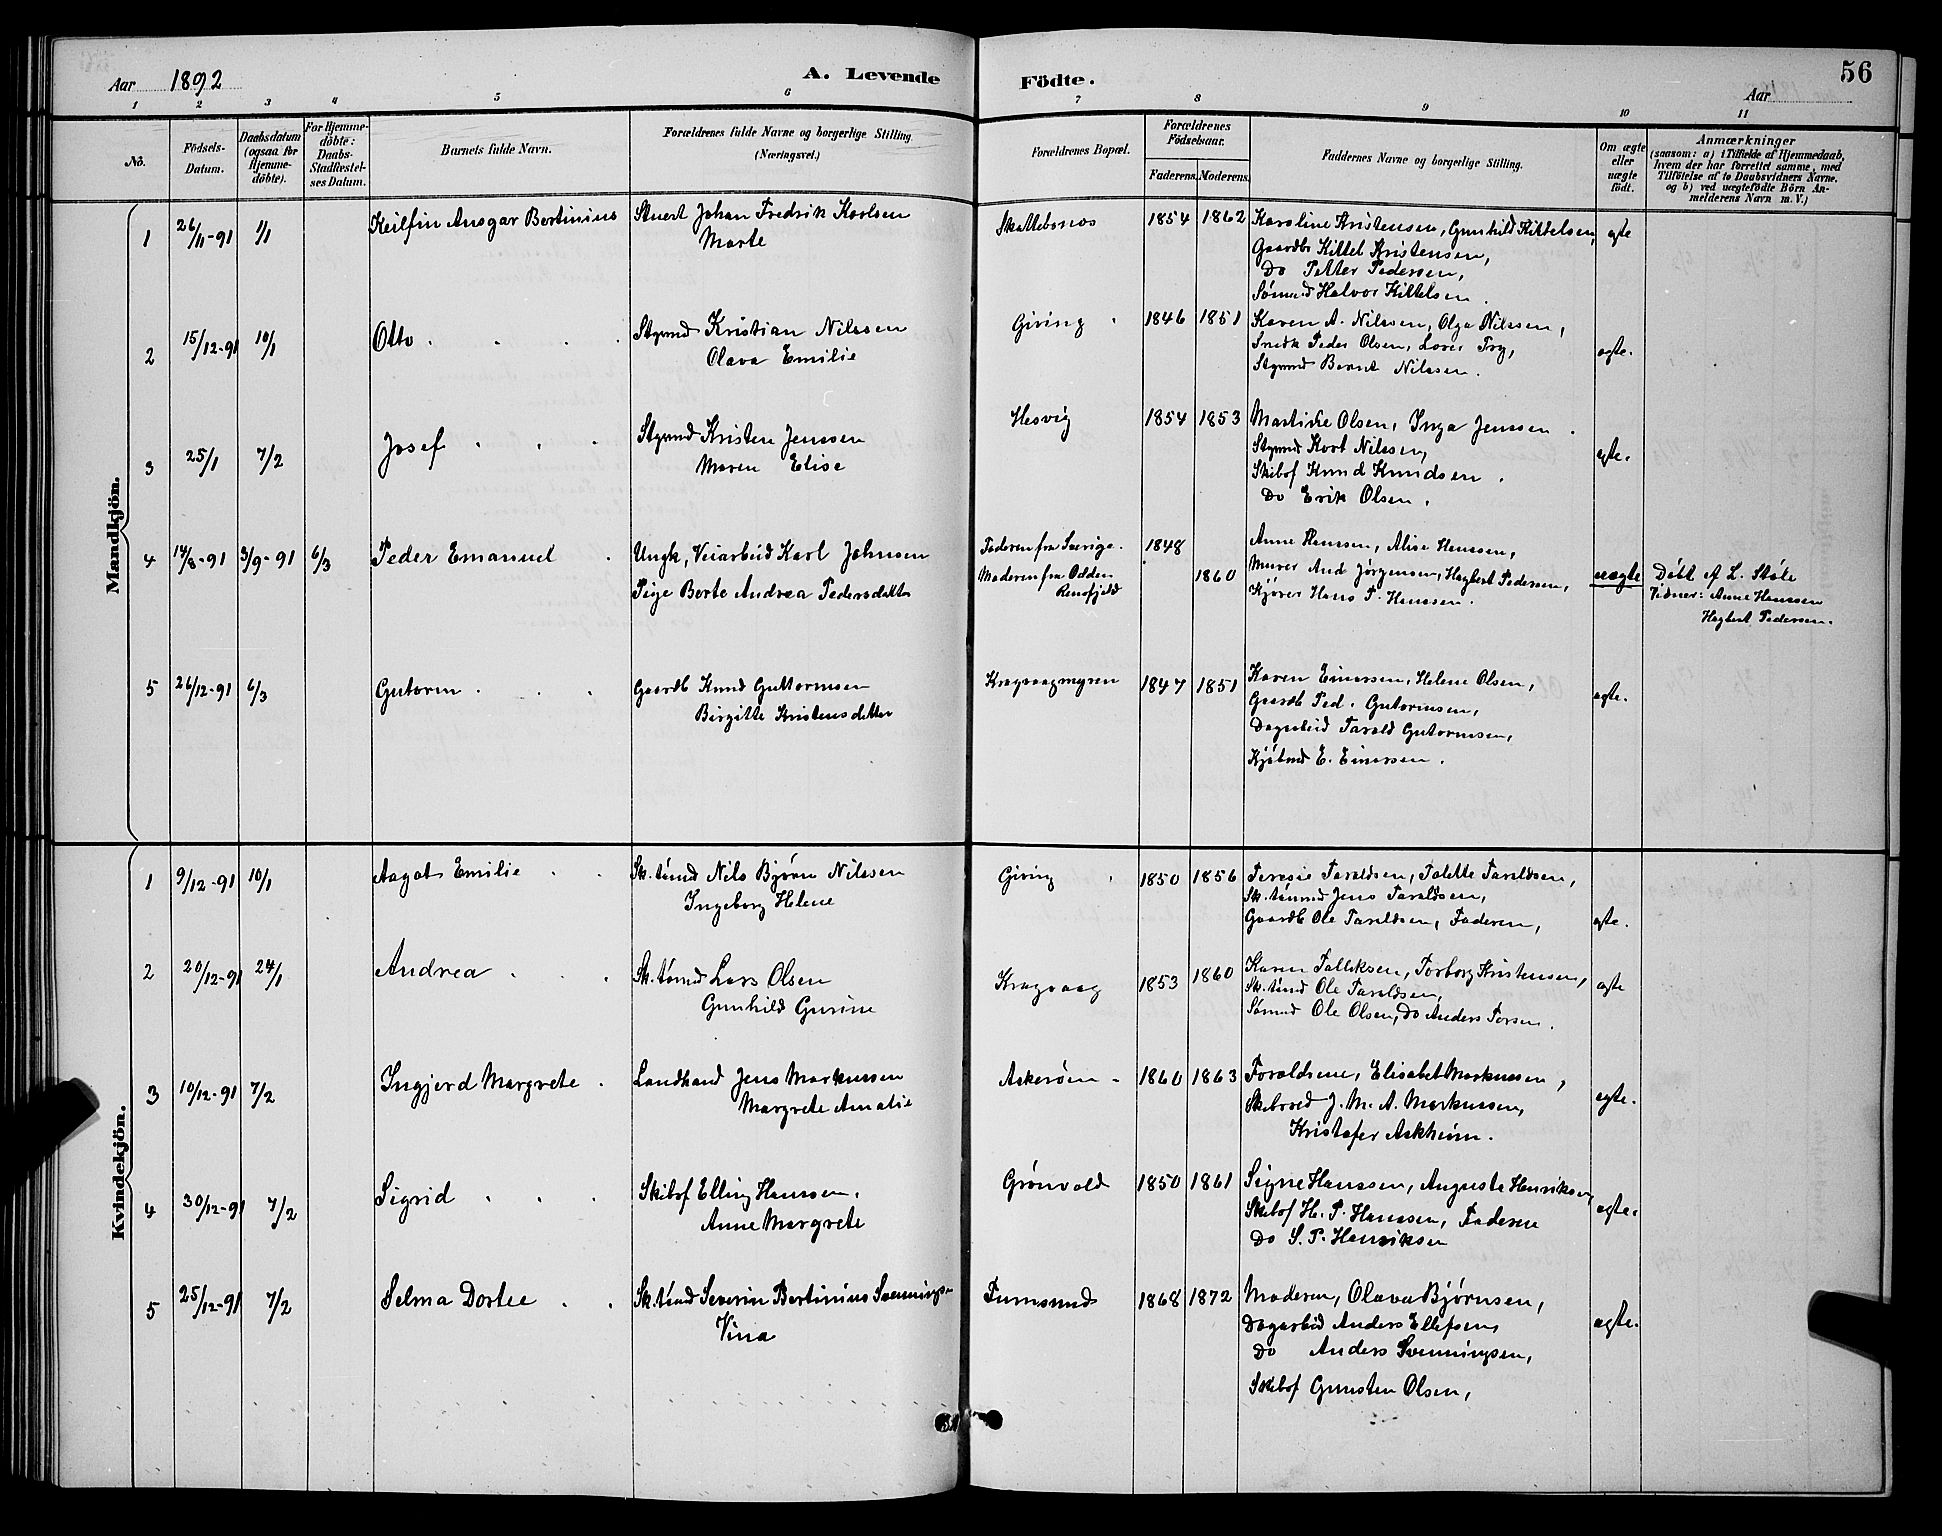 Aar 1892
A. Levende
Födte.
56
Aar
1 2 3 4 5 6 7 8 9 10 11
No.
Födsels-Datum.
Daabsdatum (ogsaa for Hjemme-döbte).
For Hjemme-döbte: Daabs-Stadfæstel-ses Datum.
Barnets fulde Navn.
Forældrenes fulde Navne og borgerlige Stilling. (Næringsvei.)
Forældrenes Bopæl.
Forældrenes Födselsaar.
Faderens. Moderens.
Faddernes Navne og borgerlige Stilling.
Om ægte eller uægte födt.
Anmærkninger
(saasom: a) i Tilfælde af Hjemmedaab, hvem der har forrettet samme, med Tilföielse af to Daabsvidners Navne, og b) ved uægtefödte Börn An-melderens Navn m. V.)
Mandkjön.
1 26/11-91 1/1 Keilfin Ansgar Bertinius Stuert Johan Fredrik Karlsen
Marte
Skattebonos 1854 1862 Karoline Kristensen, Gunhild Kittelsen, ægte
Gaardb Kittel Kristensen,
Do Petter Pedersen,
Sømand Halvor Kittelsen.
2 15/12-91 10/1 Otto Stgmnd Kristian Nilssen
Olava Emilie
Giving 1846 1851 Karen A. Nilssen, Olga Nilssen, ægte.
Snedk Peder Olsen, Lover Try,
Stgmnd Bernt Nilssen.
3 25/1 7/2 Josef Stgmnd Kristen Jenssen
Maren Elise
Hesvig 1854 1853 Martine Olsen, Inga Jenssen. ægte.
Stgmnd Kort Nilssen,
Skibsf Knud Knudsen.
Do Erik Olsen.
4 14/8-91 3/9-91 6/3 Peder Emanuel Ungk, Veiarbeid Karl Johnsen
Pige Berte Andrea Pedersdatter
Faderen fra Sverige. 1848
Moderen fra Odden 1860
Rensfjeld
Anne Hanssen, Alise Hanssen,
Murer And Jørgensen, Hagbert Pedersen,
Kjører Hans P. Hanssen.
uægte Döbt af L. Støle
Vidner: Anne Hanssen
Hagbert Pedersen.
5 26/12-91 6/3 Gutorm Gaardb Knud Guttormsen
Birgitte Kristensdatter
Kragvaagmyren 1847 1851 Karen Einersen, Helene Olsen, ægte.
Gaardb Ped. Gutormsen,
Dagarbeid Tarald Gutormsen,
Kjøbmd E. Einersen.
Kvindekjön.
1 9/12-91 10/1 Aagot Emilie Sk.tømd Nils Bjørn Nilssen
Ingeborg Helene
Giving 1850 1856 Teresie Taraldsen, Talette Taraldsen, ægte.
Sk.tømmd Jens Taraldsen,
Gaardb Ole Taraldsen, Faderen,
2 20/12-91 24/1 Andrea Sk.tømd Lars Olsen
Gunhild Gurine
Kragvaag 1853 1860 Karen Falleksen, Torborg Kristensen, ægte
Sk.tømd Ole Taraldsen,
Sømnd Ole Olsen, Do Anders Torsen.
3 10/12-91 7/2 Ingjerd Margrete Landhand Jens Markussen
Margrete Amalie
Askerøen 1860 1863 Foraldrene, Elisabet Markussen, ægte.
Skibsred J. M. A. Markussen,
Kristofer Askheim.
4 30/12-91 7/2 Sigrid Skibsf Elling Hanssen,
Anne Margrete
Grønvold 1850 1861 Signe Hanssen, Auguste Henriksen, ægte.
Skibsf H. P. Hanssen, Faderen
Do S. P. Henriksen
5 25/12-91 7/2 Selma Dortee Sk.tømd Severin Bertinius Svenningsen
Vina
Furusund 1868 1872 Moderen, Olava Bjørnsen, ægte.
Dagarbeid Anders Ellefsen,
Do Anders Svenningsen,
Skibsf Gunsten Olsen,